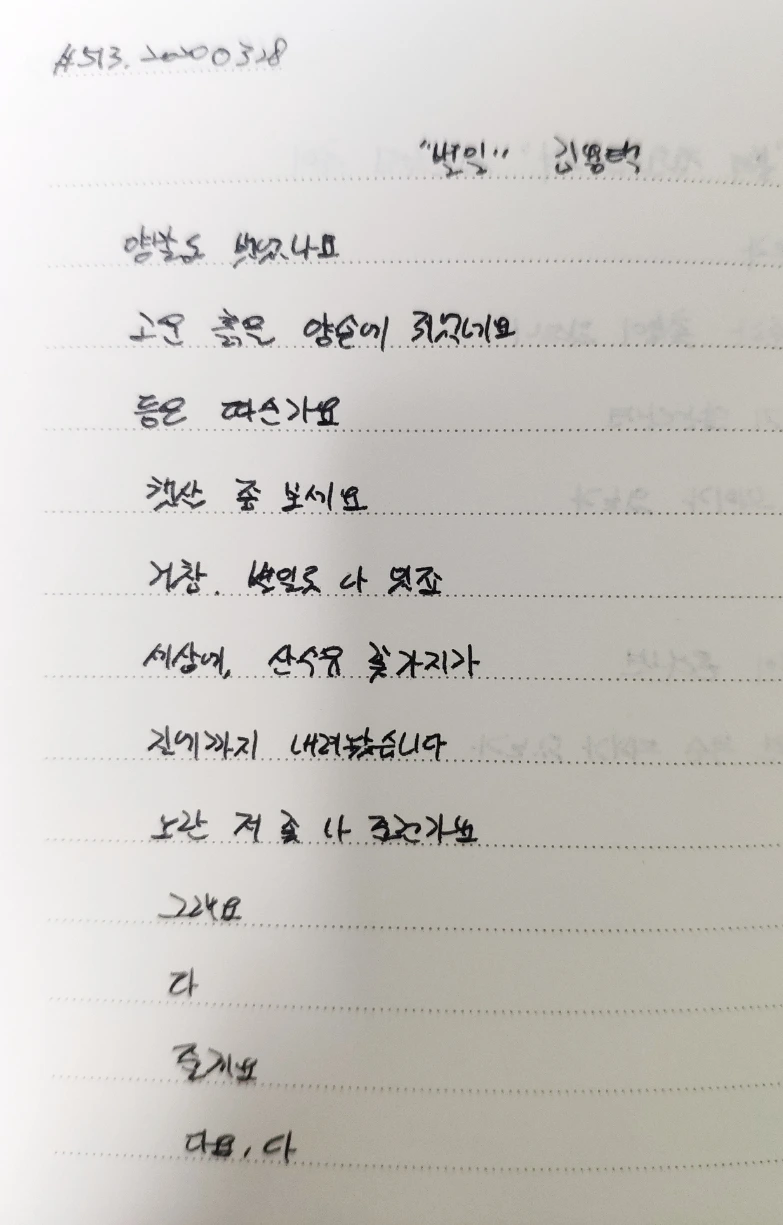 #513. 20200328
"별일" 김용택
양말도 벗었나요
고운 흙을 양손에 쥐었네요
등은 따순가요
햇살 좀 보세요
거참, 별일도 다 있죠
세상에, 산수유 꽃가지가
길에까지 내려왔습니다
노란 저 꽃 나 줄건가요
그래요
다
줄게요
다요, 다